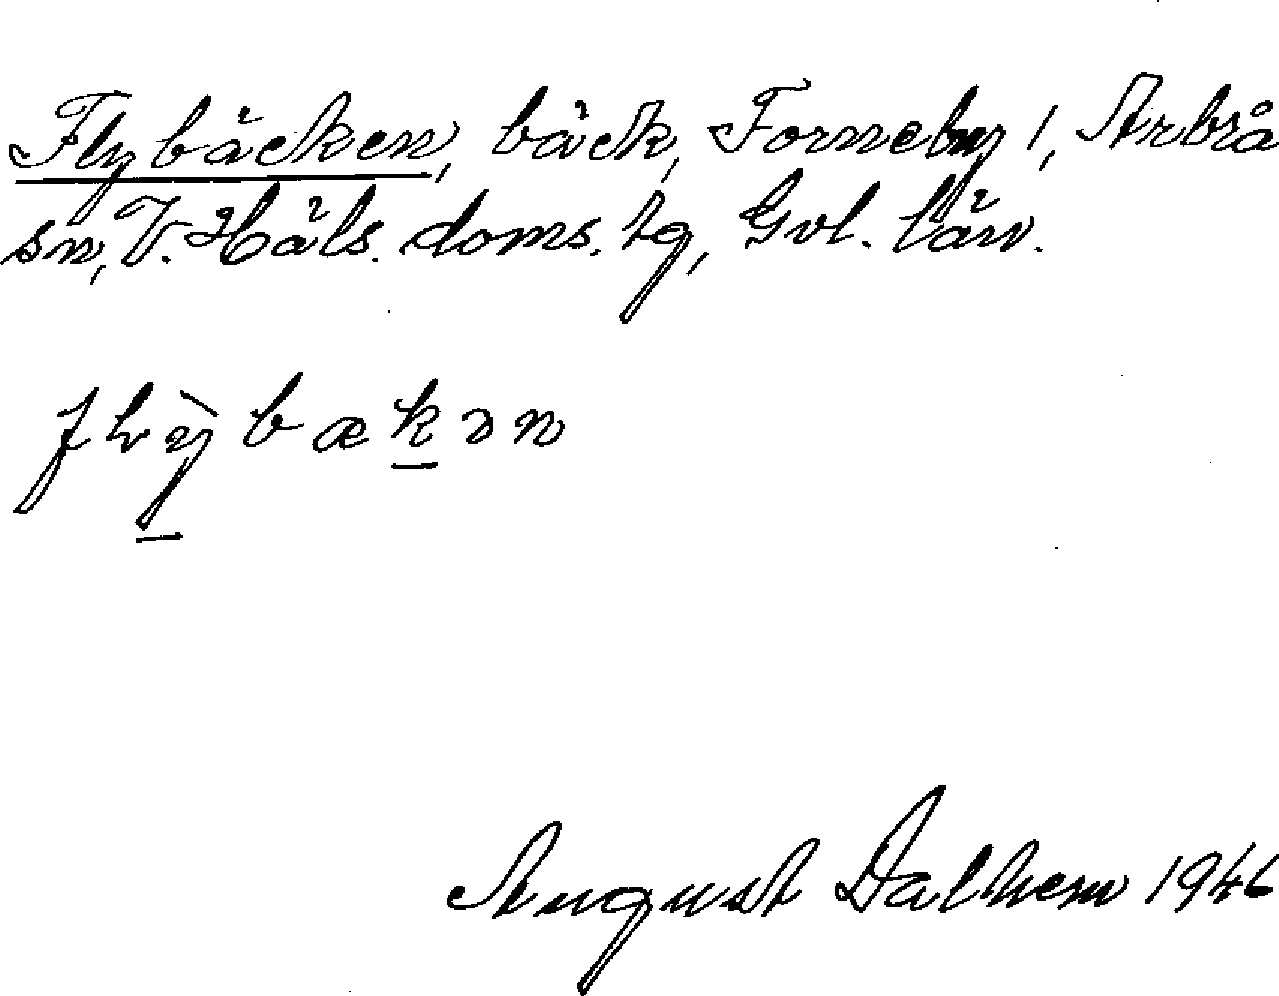 Flybäcken, bäck, Forneby 1, Arbrå
sn, V. Häls. doms. tg, Gvl. län.
flỳbækən
August Dalhem 1946